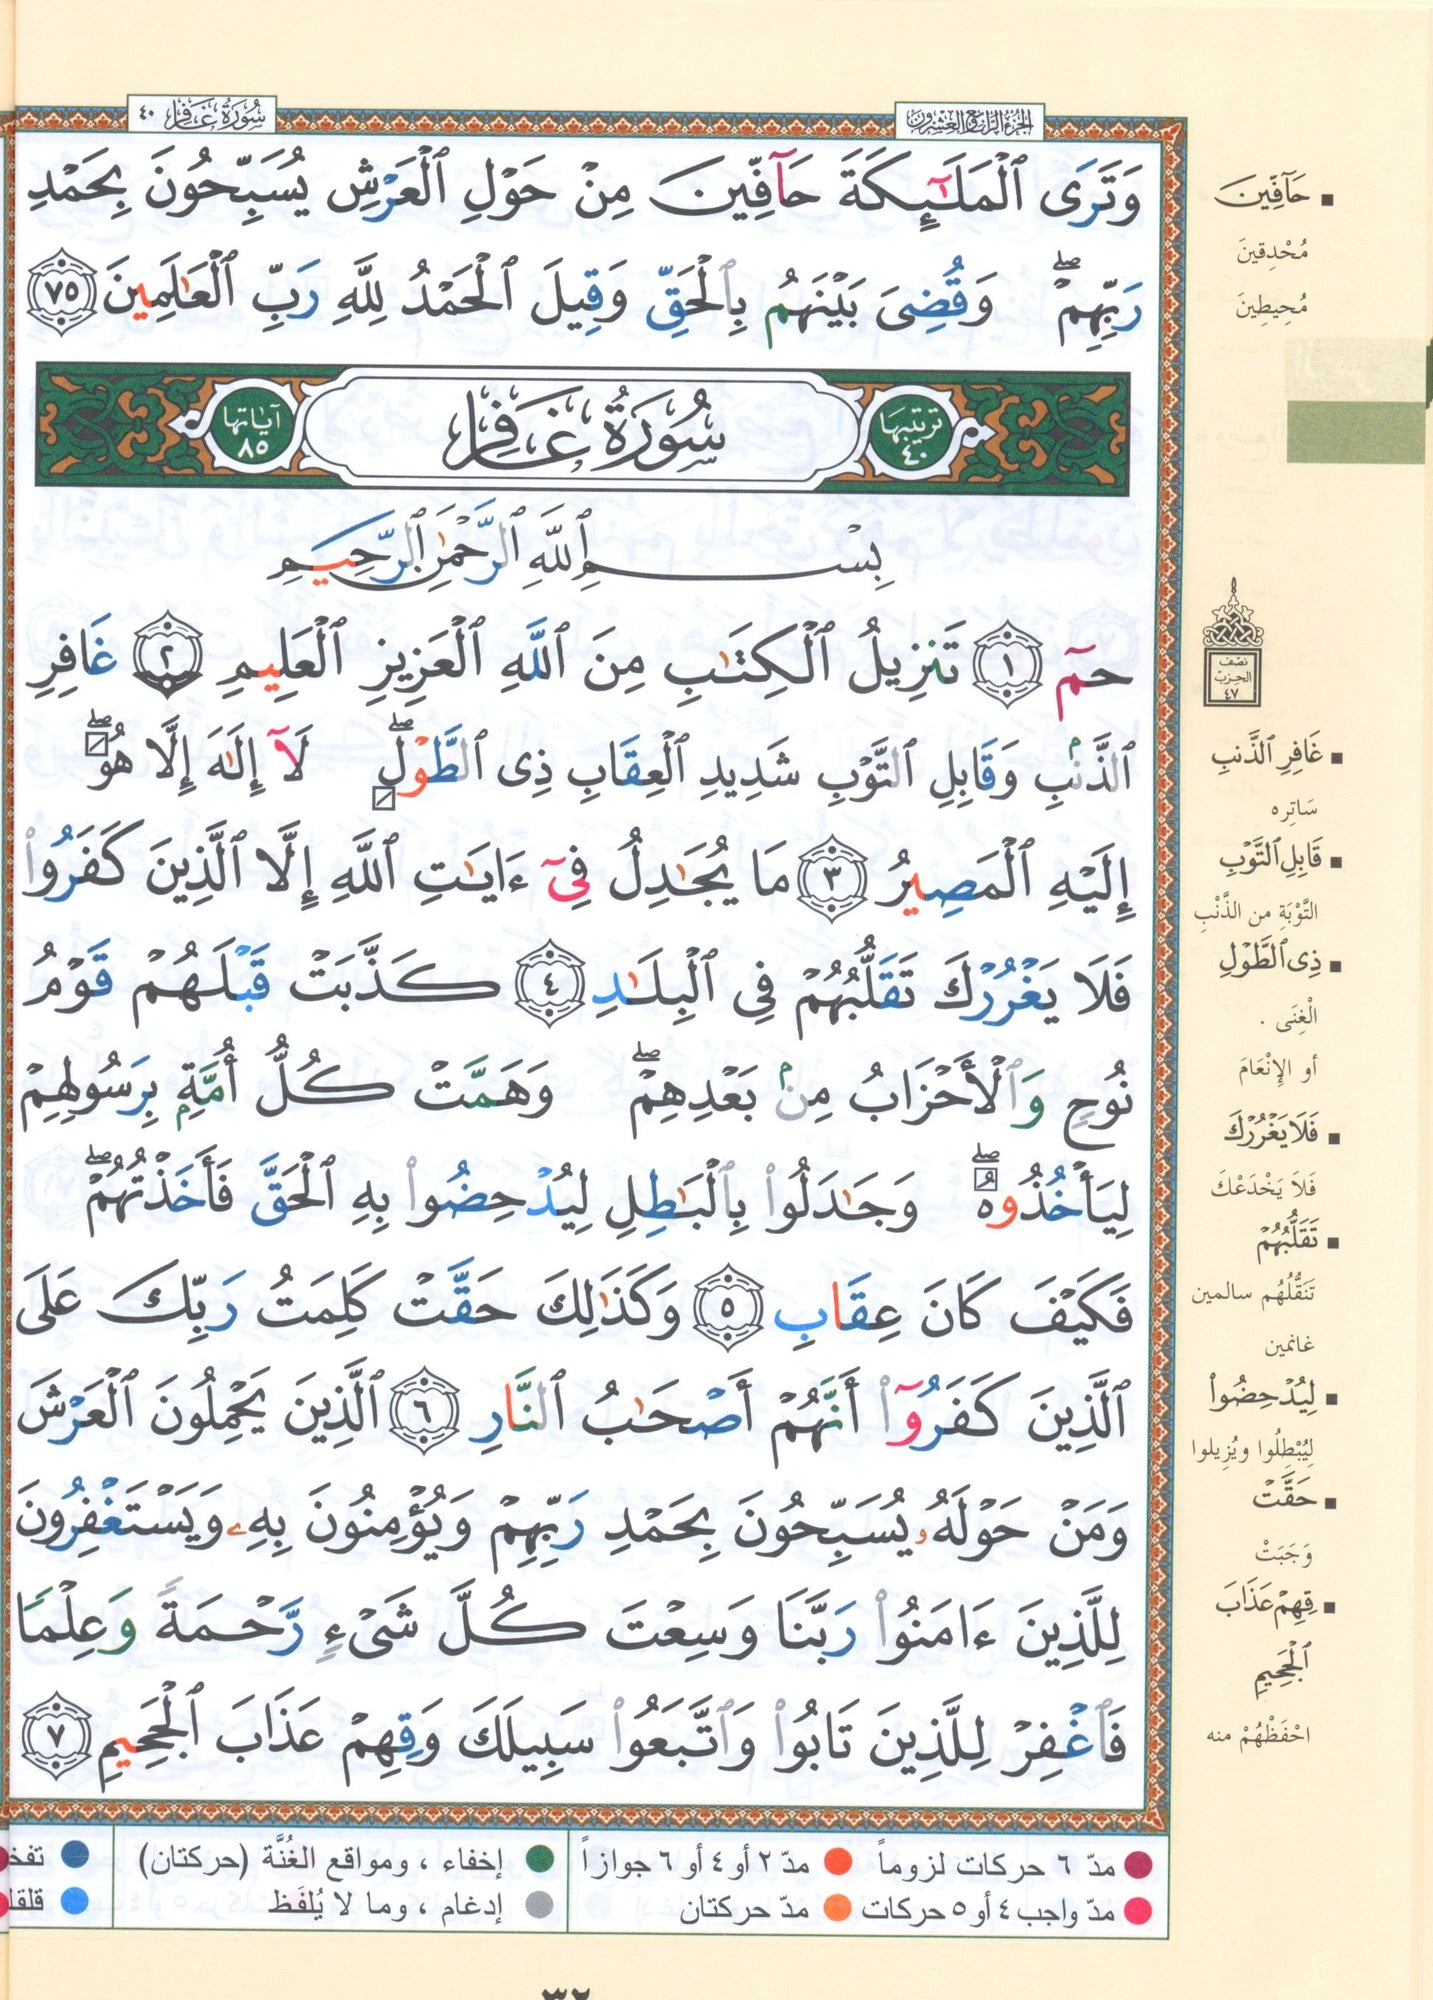 سُورَةُ غَافِر ٤٠
الجُزْءُ الرَّابِعُ وَالعِشْرُونَ
وَتَرَى ٱلْمَلَـٰٓئِكَةَ حَآفِّينَ مِنْ حَوْلِ ٱلْعَرْشِ يُسَبِّحُونَ بِحَمْدِ
رَبِّهِمْ ۖ وَقُضِىَ بَيْنَهُم بِٱلْحَقِّ وَقِيلَ ٱلْحَمْدُ لِلَّهِ رَبِّ ٱلْعَـٰلَمِينَ ٧٥
ترتيبها ٤٠
سُورَةُ غَافِر
آياتها ٨٥
بِسْمِ ٱللَّهِ ٱلرَّحْمَـٰنِ ٱلرَّحِيمِ
حمٓ ١ تَنزِيلُ ٱلْكِتَـٰبِ مِنَ ٱللَّهِ ٱلْعَزِيزِ ٱلْعَلِيمِ ٢ غَافِرِ
ٱلذَّنۢبِ وَقَابِلِ ٱلتَّوْبِ شَدِيدِ ٱلْعِقَابِ ذِى ٱلطَّوْلِ ۖ لَآ إِلَـٰهَ إِلَّا هُوَ ۖ
إِلَيْهِ ٱلْمَصِيرُ ٣ مَا يُجَـٰدِلُ فِىٓ ءَايَـٰتِ ٱللَّهِ إِلَّا ٱلَّذِينَ كَفَرُوا۟
فَلَا يَغْرُرْكَ تَقَلُّبُهُمْ فِى ٱلْبِلَـٰدِ ٤ كَذَّبَتْ قَبْلَهُمْ قَوْمُ
نُوحٍ وَٱلْأَحْزَابُ مِنۢ بَعْدِهِمْ ۖ وَهَمَّتْ كُلُّ أُمَّةٍۭ بِرَسُولِهِمْ
لِيَأْخُذُوهُ ۖ وَجَـٰدَلُوا۟ بِٱلْبَـٰطِلِ لِيُدْحِضُوا۟ بِهِ ٱلْحَقَّ فَأَخَذْتُهُمْ ۖ
فَكَيْفَ كَانَ عِقَابِ ٥ وَكَذَٰلِكَ حَقَّتْ كَلِمَتُ رَبِّكَ عَلَى
ٱلَّذِينَ كَفَرُوٓا۟ أَنَّهُمْ أَصْحَـٰبُ ٱلنَّارِ ٦ ٱلَّذِينَ يَحْمِلُونَ ٱلْعَرْشَ
وَمَنْ حَوْلَهُۥ يُسَبِّحُونَ بِحَمْدِ رَبِّهِمْ وَيُؤْمِنُونَ بِهِۦ وَيَسْتَغْفِرُونَ
لِلَّذِينَ ءَامَنُوا۟ رَبَّنَا وَسِعْتَ كُلَّ شَىْءٍ رَّحْمَةً وَعِلْمًا
فَٱغْفِرْ لِلَّذِينَ تَابُوا۟ وَٱتَّبَعُوا۟ سَبِيلَكَ وَقِهِمْ عَذَابَ ٱلْجَحِيمِ ٧
▪ حَآفِّينَ
مُحْدِقِينَ
مُحِيطِينَ
نصف
الحزب
٤٧
▪ غَافِرِ ٱلذَّنۢبِ
سَاتِره
▪ قَابِلِ ٱلتَّوْبِ
التَّوْبَةِ من الذَّنْبِ
▪ ذِى ٱلطَّوْلِ
الْغِنَى .
أو الإِنْعَامَ
▪ فَلَا يَغْرُرْكَ
فَلاَ يَخْدَعْكَ
▪ تَقَلُّبُهُمْ
تَنَقُّلُهُم سالمين
غانمين
▪ لِيُدْحِضُوا۟
لِيُبْطِلُوا ويُزِيلوا
▪ حَقَّتْ
وَجَبَتْ
▪ قِهِمْ عَذَابَ
ٱلْجَحِيمِ
احْفَظْهُمْ منه
مدّ ٦ حركات لزوماً مدّ ٢ أو ٤ أو ٦ جوازاً إخفاء ، ومواقع الغُنَّة (حركتان) تفخ
مدّ واجب ٤ أو ٥ حركات مدّ حركتان إدغام ، وما لا يُلفَظ قلقل